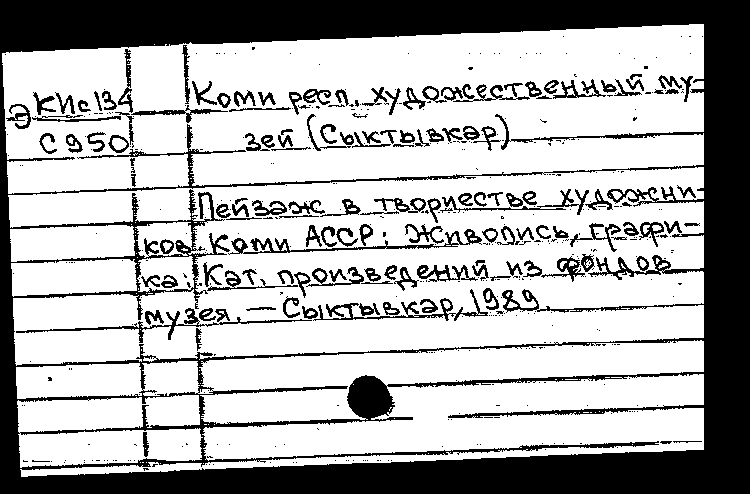 Э КИс134 Коми респ. художественный му-
С950 зей (Сыктывкар)
Пейзаж в творчестве художни-
ков Коми АССР: Живопись, графи-
ка: Кат. произведений из фондов
музея. — Сыктывкар, 1989.